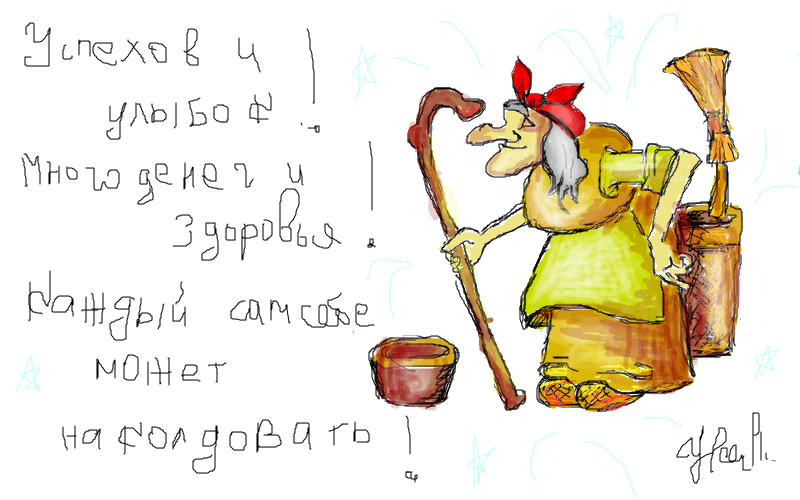 Успехов и
улыбок!
Много денег и
здоровья!
Каждый сам себе
может
наколдовать!